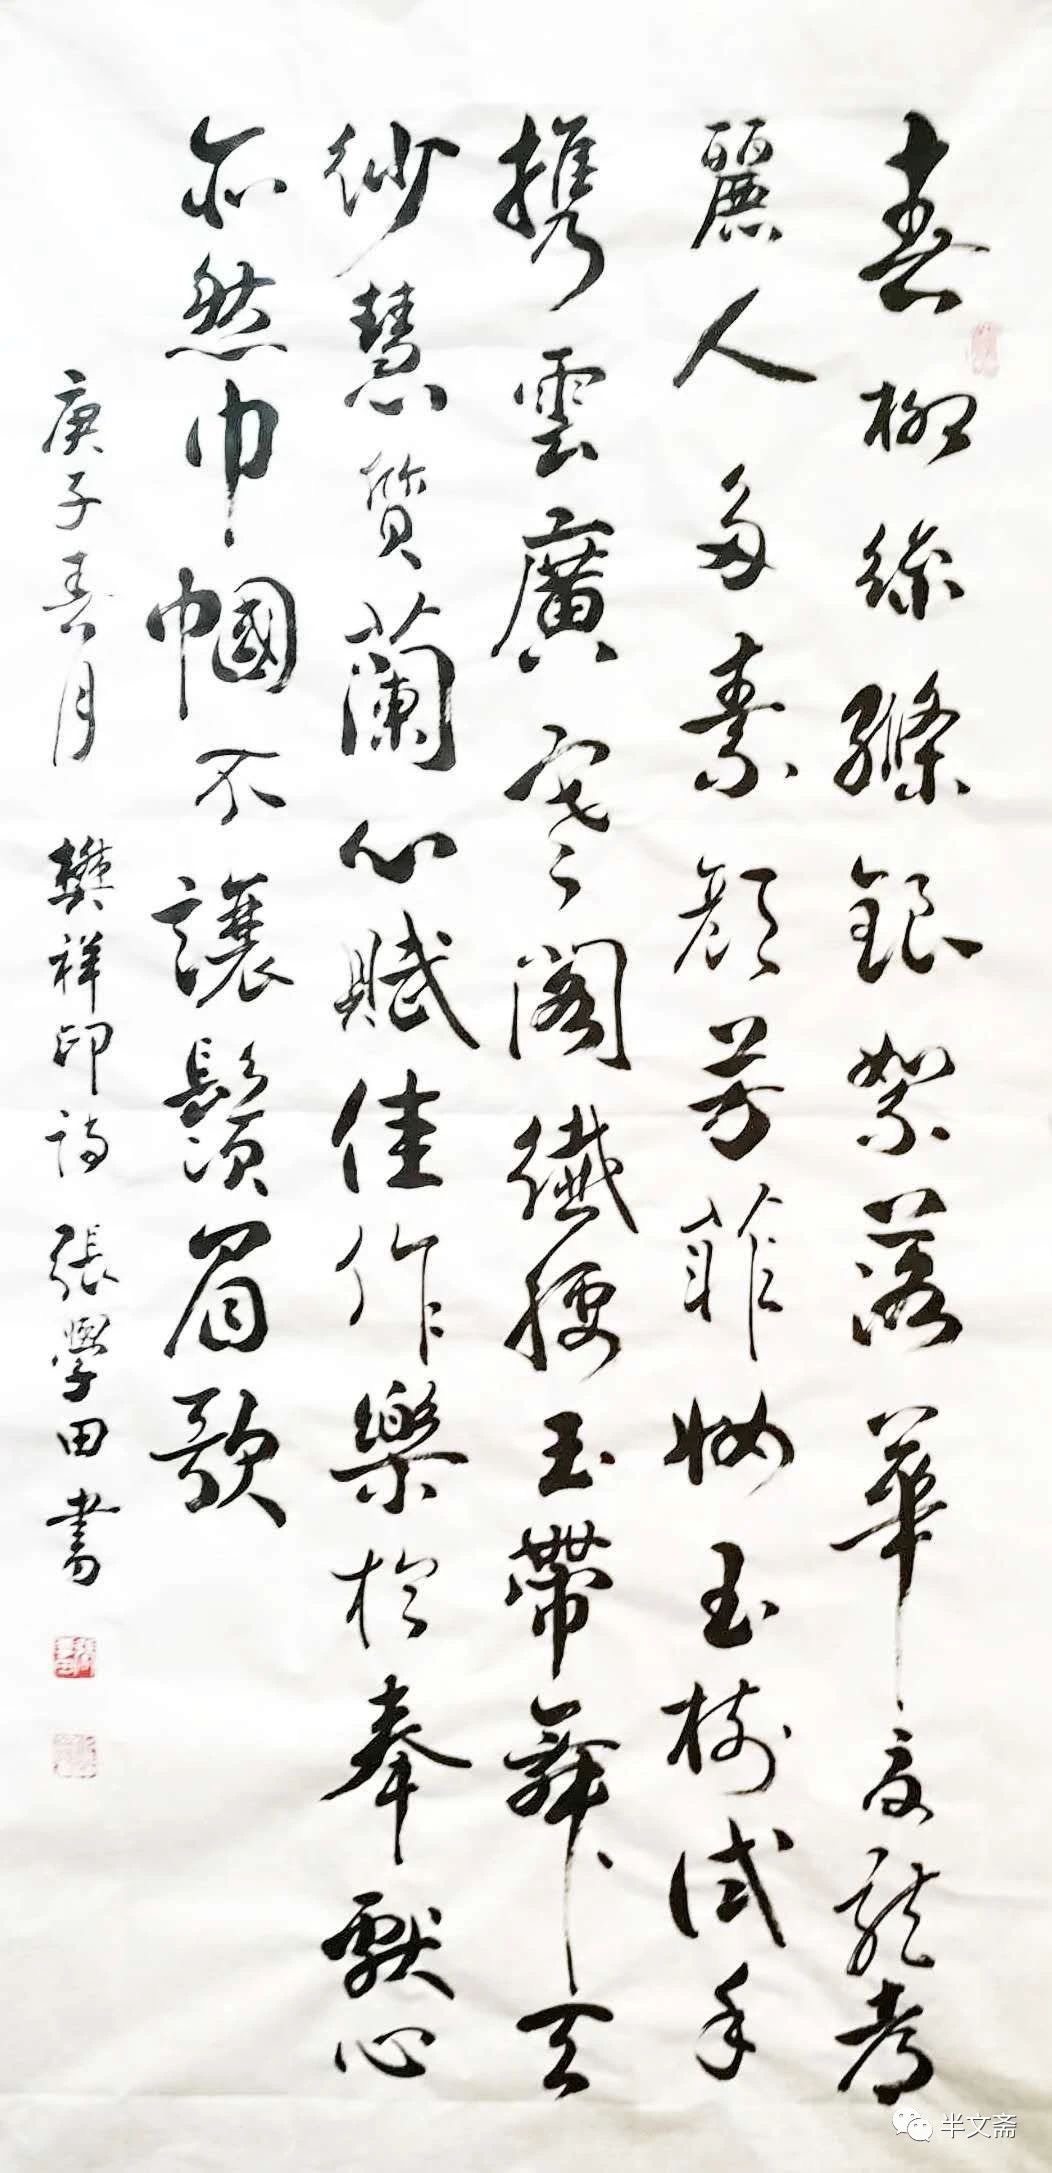 春柳絲縧銀絮落華夏龍都
麗人多素顏芳菲妝玉樹試手
携雲廣寒閣纖腰玉帶舞天
紗慧質蘭心賦佳作樂於奉獻心
亦然巾幗不讓鬚眉歌
庚子春月 樊祥印詩 張學田書
半文斋